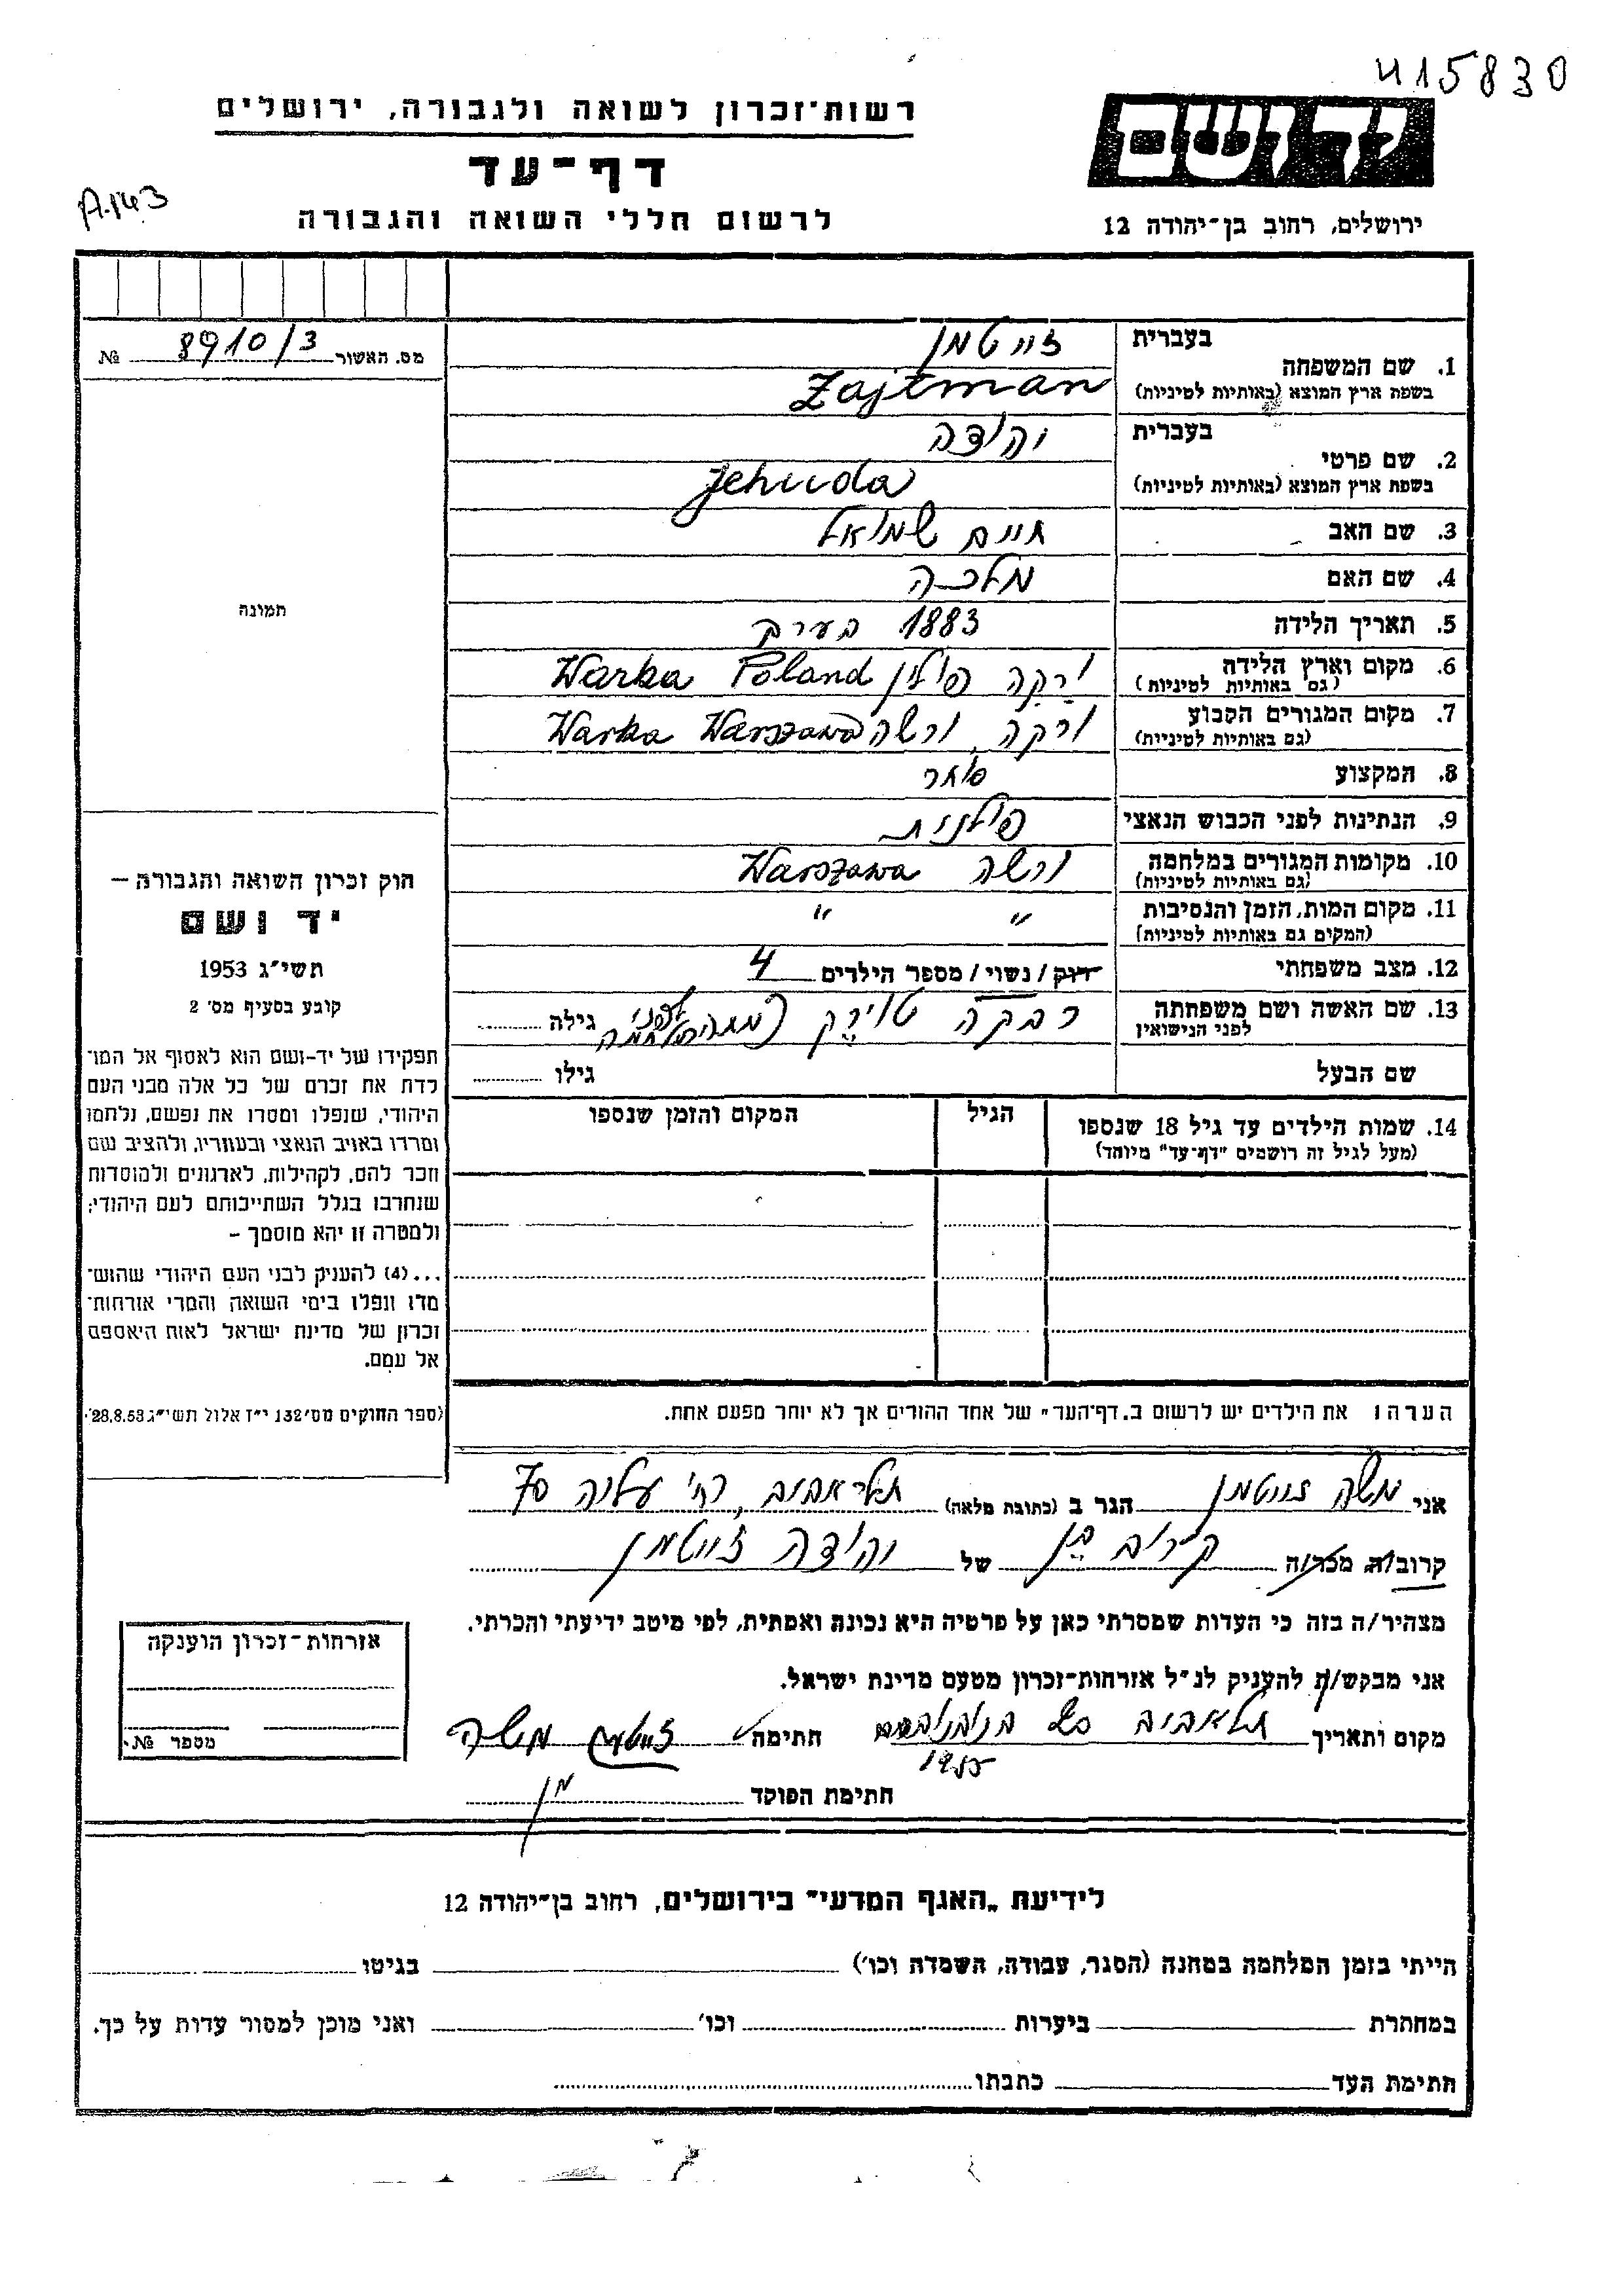 415830
רשות-זכרון לשואה ולגבורה, ירושלים
ידושם
דף-עד
A.143
לרשום חללי השואה והגבורה
ירושלים, רחוב בן-יהודה 12
מס. האשור 8910/3 №
1. שם המשפחה
בעברית זייטמן
בשפת ארץ המוצא (באותיות לטיניות) Zajtman
2. שם פרטי
בעברית יהודה
בשפת ארץ המוצא (באותיות לטיניות) Jehuda
3. שם האב חיים שמואל
4. שם האם מלכה
5. תאריך הלידה 1883 בערך
6. מקום וארץ הלידה (גם באותיות לטיניות) ורקה פולין Warka Poland
7. מקום המגורים הקבוע (גם באותיות לטיניות) ורקה, ורשה Warka Warszawa
8. המקצוע סוחר
9. הנתינות לפני הכבוש הנאצי פולנית
10. מקומות המגורים במלחמה (גם באותיות לטיניות) ורשה Warszawa
11. מקום המות, הזמן והנסיבות (המקום גם באותיות לטיניות) " "
12. מצב משפחתי רוק / נשוי / מספר הילדים 4
13. שם האשה ושם משפחתה לפני הנישואין רבקה גילה
שם הבעל גילו
14. שמות הילדים עד גיל 18 שנספו
(מעל לגיל זה רושמים "דף-עד" מיוחד)
הגיל
המקום והזמן שנספו
תמונה
חוק זכרון השואה והגבורה –
יד ושם
תשי״ג 1953
קובע בסעיף מס׳ 2
תפקידו של יד-ושם הוא לאסוף אל המו־
לדת את זכרם של כל אלה מבני העם
היהודי, שנפלו ומסרו את נפשם, נלחמו
ומרדו באויב הנאצי ובעוזריו, ולהציב שם
וזכר להם, לקהילות, לארגונים ולמוסדות
שנחרבו בגלל השתייכותם לעם היהודי;
ולמטרה זו יהא מוסמך –
...(4) להעניק לבני העם היהודי שהוש־
מדו ונפלו בימי השואה והמרי אזרחות־
זכרון של מדינת ישראל לאות היאספם
אל עמם.
(ספר החוקים מס׳ 132 י״ז אלול תשי״ג 28.8.53)
הערה: את הילדים יש לרשום ב„דף-העד" של אחד ההורים אך לא יותר מפעם אחת.
אני משה זייטמן הגר ב (כתובת מלאה) תל-אביב, רח' עליה 70
קרוב/ה מכר/ה קרוב בן של יהודה זייטמן
מצהיר/ה בזה כי העדות שמסרתי כאן על פרטיה היא נכונה ואמתית, לפי מיטב ידיעתי והכרתי.
אני מבקש/ת להעניק לנ״ל אזרחות-זכרון מטעם מדינת ישראל.
מקום ותאריך תל-אביב 1955 חתימה זייטמן משה
חתימת הפוקד
אזרחות-זכרון הוענקה
מספר №
לידיעת „האגף המדעי" בירושלים, רחוב בן-יהודה 12
הייתי בזמן המלחמה במחנה (הסגר, עבודה, השמדה וכו') בגיטו
במחתרת ביערות וכו' ואני מוכן למסור עדות על כך.
חתימת העד כתבתו